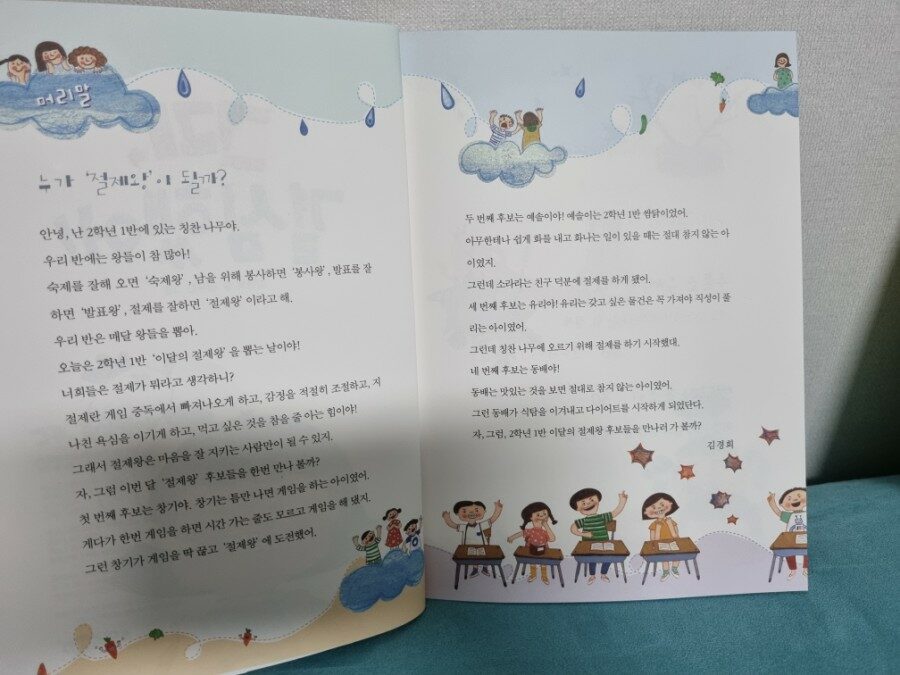 머리말
누가 '절제왕'이 될까?
안녕, 난 2학년 1반에 있는 칭찬 나무야.
우리 반에는 왕들이 참 많아!
숙제를 잘해 오면 '숙제왕', 남을 위해 봉사하면 '봉사왕', 발표를 잘
하면 '발표왕', 절제를 잘하면 '절제왕'이라고 해.
우리 반은 매달 왕들을 뽑아.
오늘은 2학년 1반 '이달의 절제왕'을 뽑는 날이야!
너희들은 절제가 뭐라고 생각하니?
절제란 게임 중독에서 빠져나오게 하고, 감정을 적절히 조절하고, 지
나친 욕심을 이기게 하고, 먹고 싶은 것을 참을 줄 아는 힘이야!
그래서 절제왕은 마음을 잘 지키는 사람만이 될 수 있지.
자, 그럼 이번 달 '절제왕' 후보들을 한번 만나 볼까?
첫 번째 후보는 창기야. 창기는 틈만 나면 게임을 하는 아이였어.
게다가 한번 게임을 하면 시간 가는 줄도 모르고 게임을 해 댔지.
그런 창기가 게임을 딱 끊고 '절제왕'에 도전했어.
두 번째 후보는 예솔이야! 예솔이는 2학년 1반 쌈닭이었어.
아무한테나 쉽게 화를 내고 화나는 일이 있을 때는 절대 참지 않는 아
이였지.
그런데 소라라는 친구 덕분에 절제를 하게 됐어.
세 번째 후보는 유리야! 유리는 갖고 싶은 물건은 꼭 가져야 직성이 풀
리는 아이였어.
그런데 칭찬 나무에 오르기 위해 절제를 하기 시작했대.
네 번째 후보는 동배야!
동배는 맛있는 것을 보면 절대로 참지 않는 아이였어.
그런 동배가 식탐을 이겨내고 다이어트를 시작하게 되었단다.
자, 그럼, 2학년 1반 이달의 절제왕 후보들을 만나러 가 볼까?
김경희